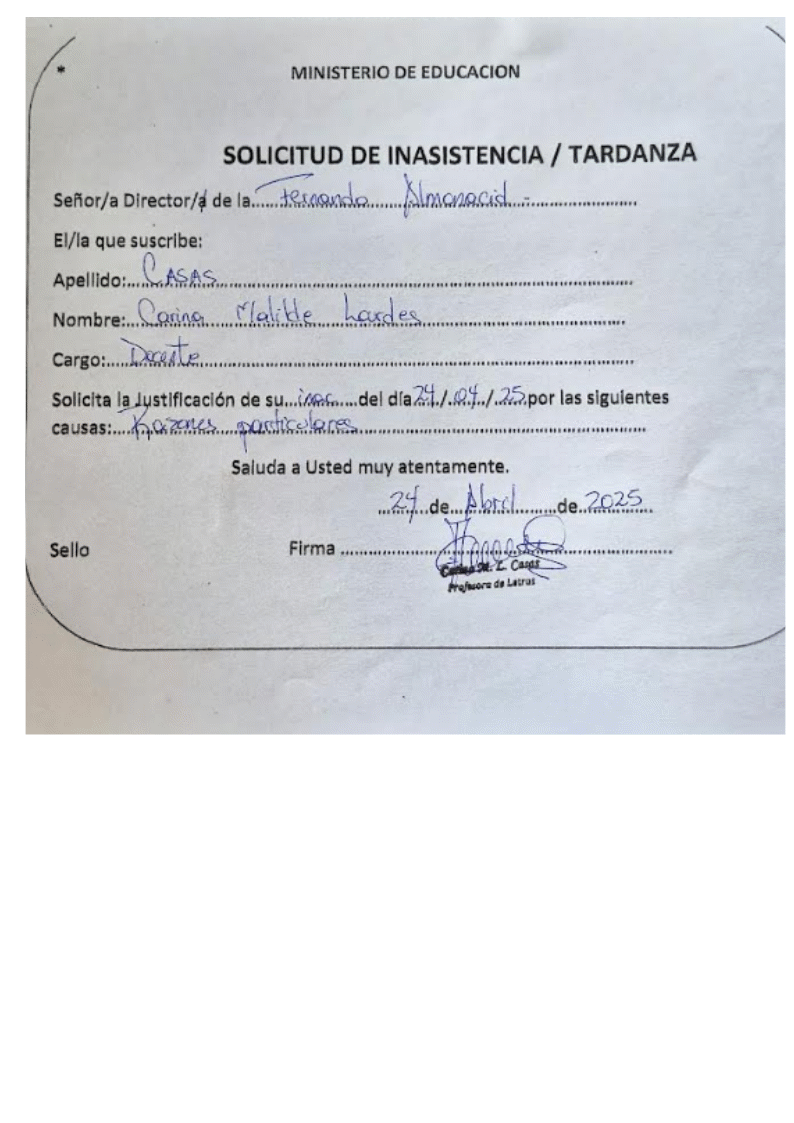 *
MINISTERIO DE EDUCACION
SOLICITUD DE INASISTENCIA / TARDANZA
Señor/a Director/a de la......Fernando......Almonacid.-.....................
El/la que suscribe:
Apellido:....CASAS......................................................
Nombre:..Carina....Matilde....Lourdes.........................................
Cargo:.....Docente......................................................
Solicita la Justificación de su...inac.....del día 24./.04../..25..por las siguientes
causas:....Razones....particulares.................................................
Saluda a Usted muy atentamente.
...24..de...Abril.........de..2025..
Sello
Firma ......................................................
Carina M. L. Casas
Profesora de Letras